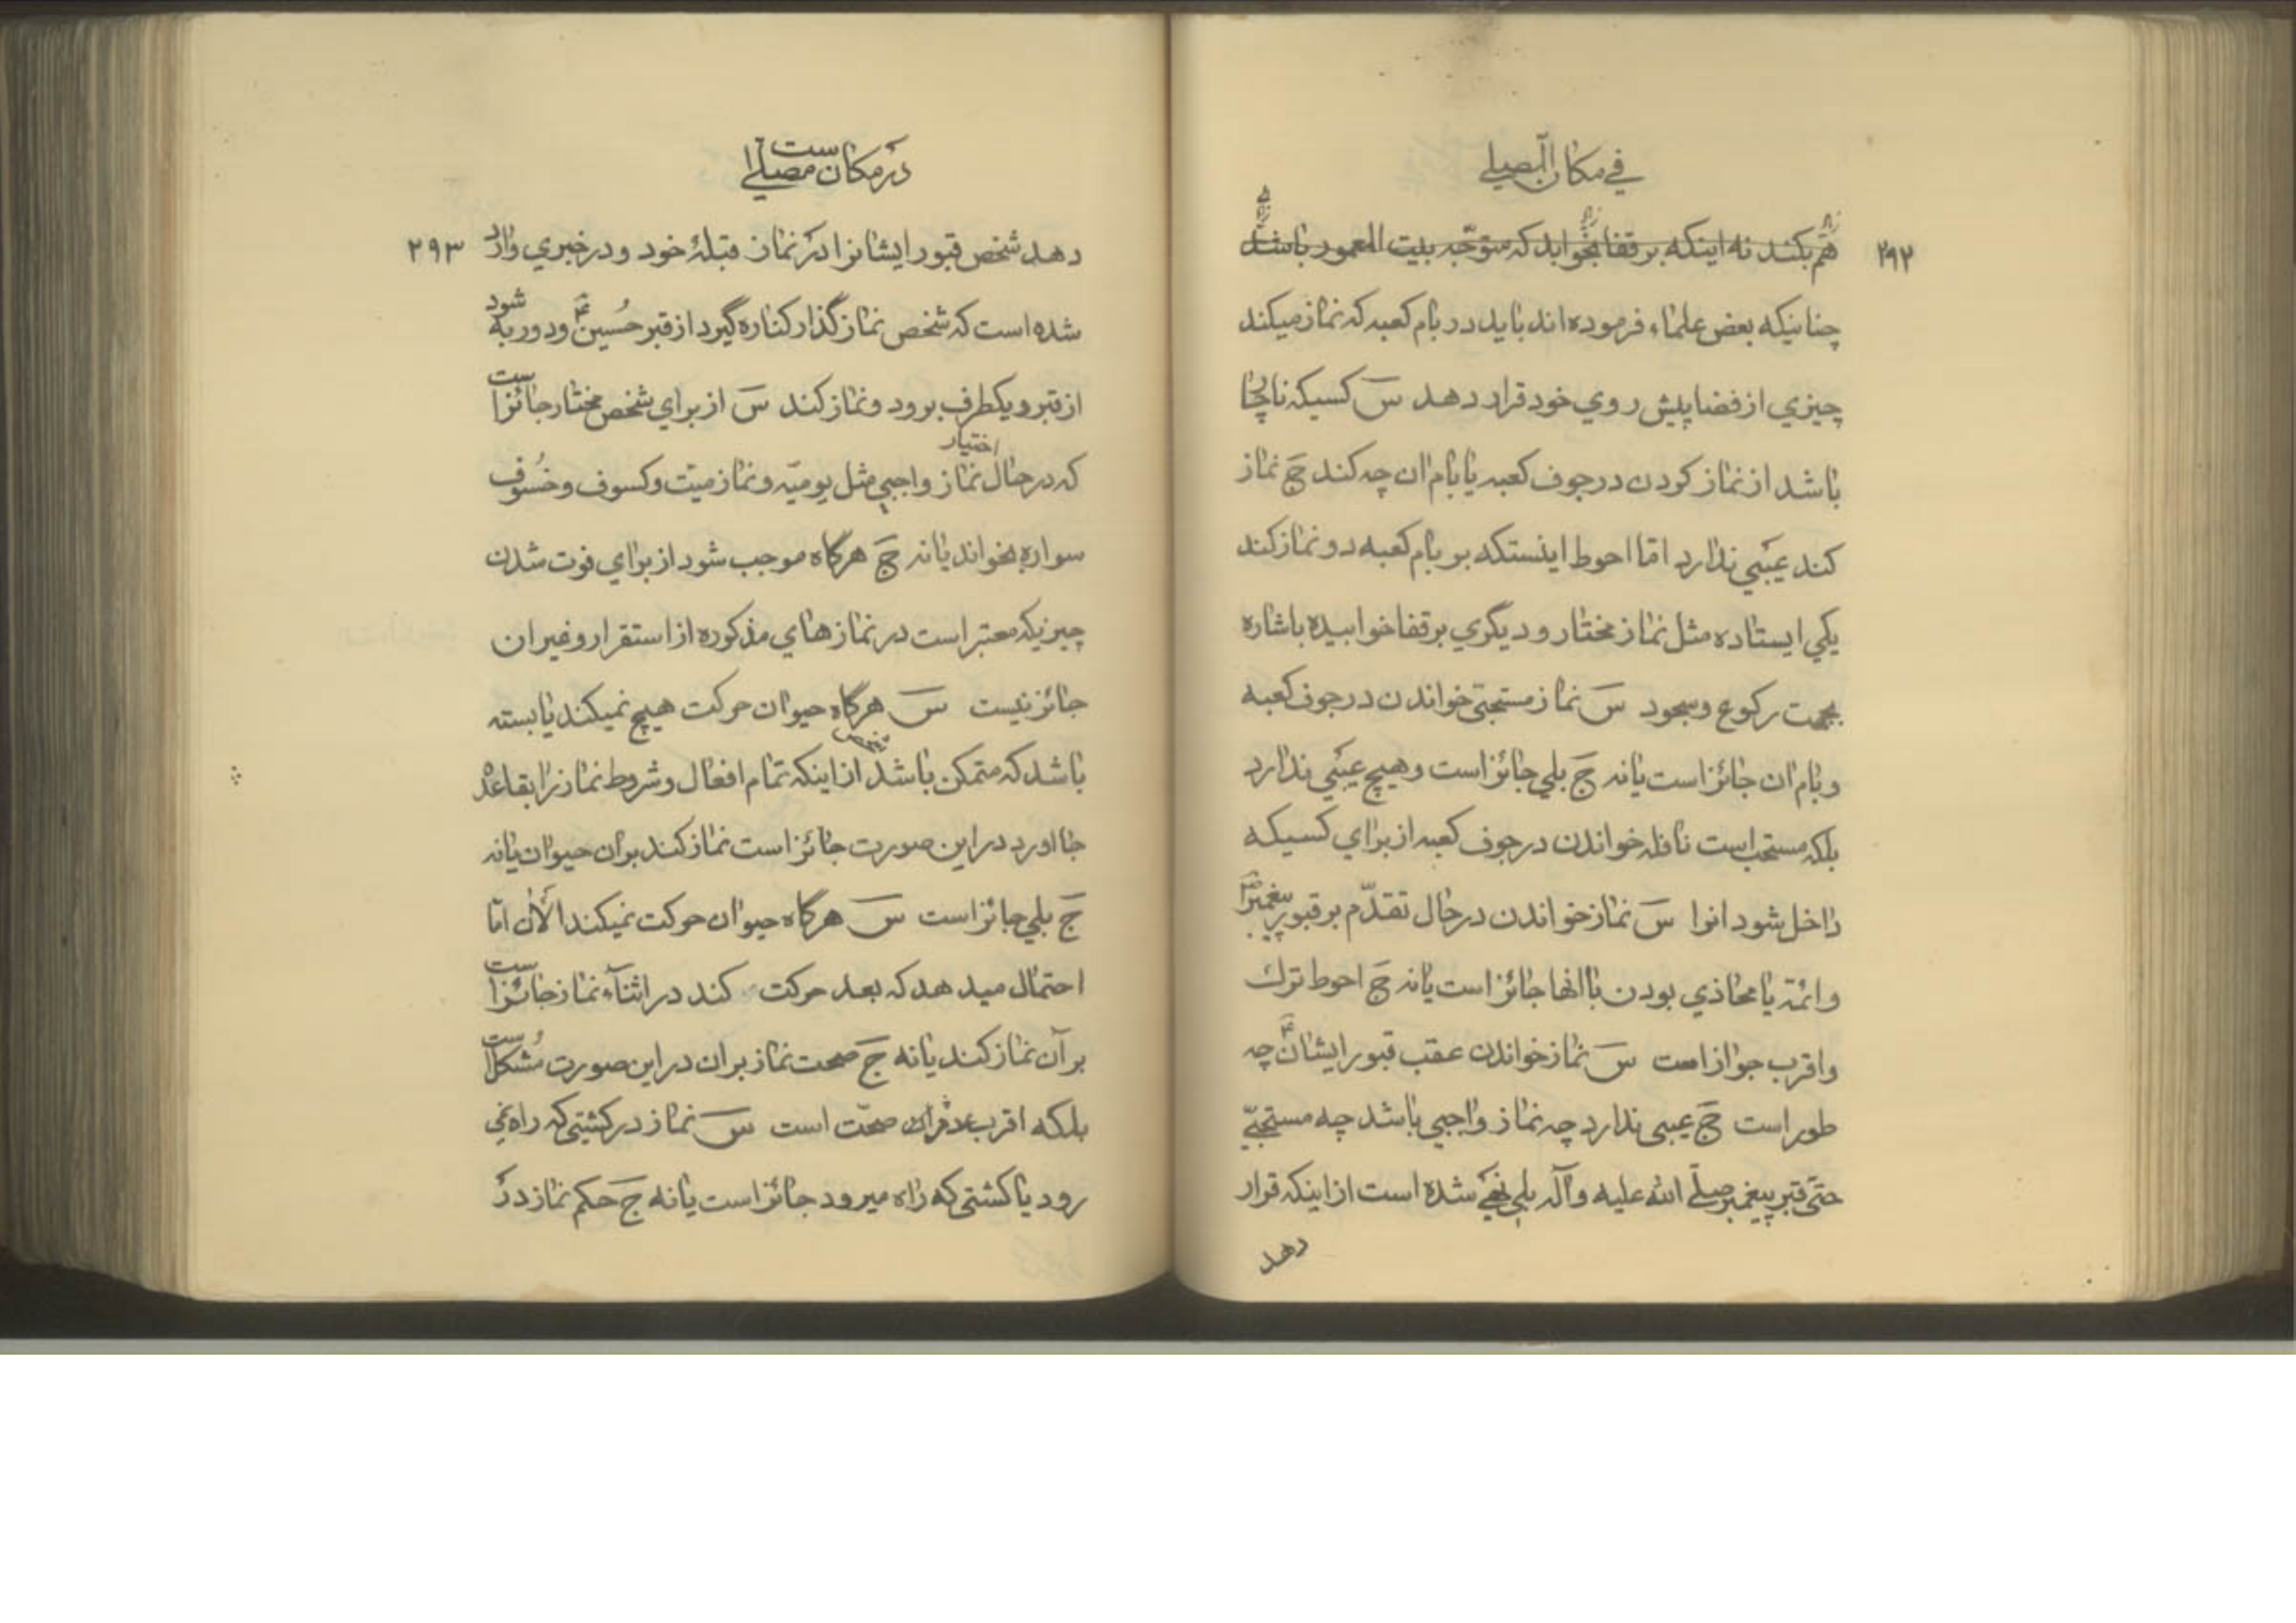 في مكان المصلي
۲۹۲
هم بكند نه اينكه بر قفا بخوابد كه متوجّه بيت المعمور باشد
چنانيكه بعض علماء فرموده اند بايد در بام كعبه كه نماز ميكند
چيزي از فضا پيش روي خود قرار دهد س كسيكه ناچار
باشد از نماز كردن در جوف كعبه يا بام ان چه كند ج نماز
كند عيبي ندارد امّا احوط اينستكه بر بام كعبه دو نماز كند
يكي ايستاده مثل نماز مختار و ديگري بر قفا خوابيده باشاره
بجهت ركوع و سجود س نماز مستحبّي خواندن در جوف كعبه
و بام ان جائز است يا نه ج بلي جائز است و هيچ عيبي ندارد
بلكه مستحب است نافله خواندن در جوف كعبه از براي كسيكه
داخل شود انرا س نماز خواندن در حال تقدّم بر قبور پيغمبر
و ائمّه يا محاذي بودن با انها جائز است يا نه ج احوط ترك
و اقرب جواز است س نماز خواندن عقب قبور ايشان چه
طور است ج عيبى ندارد چه نماز واجبي باشد چه مستحبّي
حتّى قبر پيغمبر صلّي الله عليه و آله بلي نهي شده است از اينكه قرار
دهد
در مكان مصلي است
۲۹۳
دهد شخص قبور ايشانرا در نماز قبلۀ خود و در خبري وارد
شده است كه شخص نماز گذار كناره گيرد از قبر حُسين و دور به شود
از قبر و يكطرف برود و نماز كند س از براي شخص مختار جائز است
كه در حال اختيار نماز واجبي مثل يوميّه و نماز ميّت و كسوف و خسُوف
سواره بخواند يا نه ج هرگاه موجب شود از براي فوت شدن
چيزيكه معتبر است در نماز هاي مذكوره از استقرار و غير ان
جائز نيست س هرگاه حيوان حركت هيچ نميكند يا بسته
باشد كه متمكن باشد شخص از اينكه تمام افعال و شروط نماز را بقاعده
جا اورد در اين صورت جائز است نماز كند بر ان حيوان يا نه
ج بلي جائز است س هرگاه حيوان حركت نميكند الأن امّا
احتمال ميدهد كه بعد حركت كند در اثنآء نماز جائز است
بر آن نماز كند يا نه ج صحت نماز بر ان در اين صورت مُشكل است
بلكه اقرب صحّت است س نماز در كشتيى كه راه نمي
رود يا كشتى كه راه ميرود جائز است يا نه ج حكم نماز در